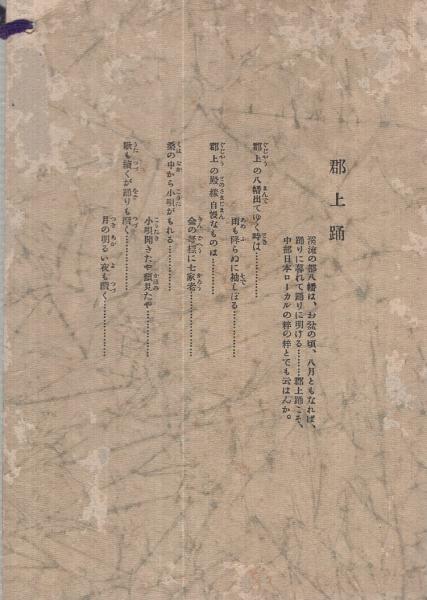 郡上踊
渓流の都八幡は、お盆の頃、八月ともなれば、
踊りに暮れて踊りに明ける………郡上踊こそ、
中部日本ローカルの粋の粋とでも云はんか。
郡上の八幡出てゆく時は…………
雨も降らぬに袖しぼる…………
郡上の殿様自慢なものは…………
金の弩標に七家老…………
桑の中から小唄がもれる…………
小唄聞きたや顔見たや…………
歌も続くが踊りも続く…………
月の明るい夜も続く…………